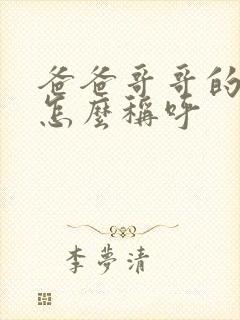 爸爸哥哥的
怎麼稱呼
李夢清